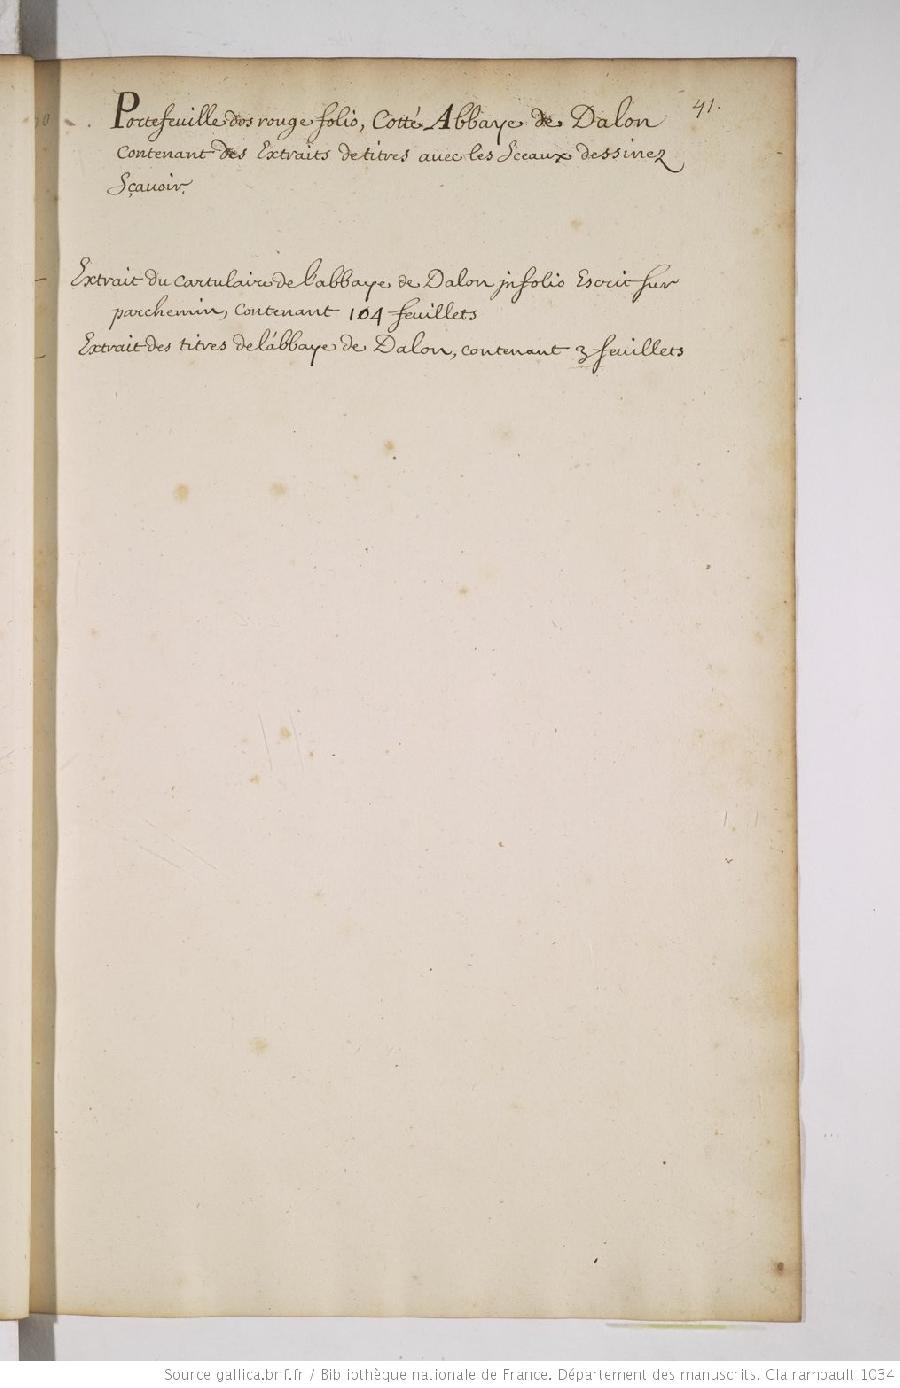 41.
Portefeuille dos rouge folio, Cotté Abbaye de Dalon
contenant des Extraits de titres avec les Sceaux dessinez
Sçavoir.
Extrait du cartulaire de l'abbaye de Dalon jnfolio Escrit sur
parchemin, contenant 104 feuillets
Extrait des titres de l'abbaye de Dalon, contenant 3 feuillets
Source gallica.bnf.fr / Bibliothèque nationale de France. Département des manuscrits. Clairambault 1034